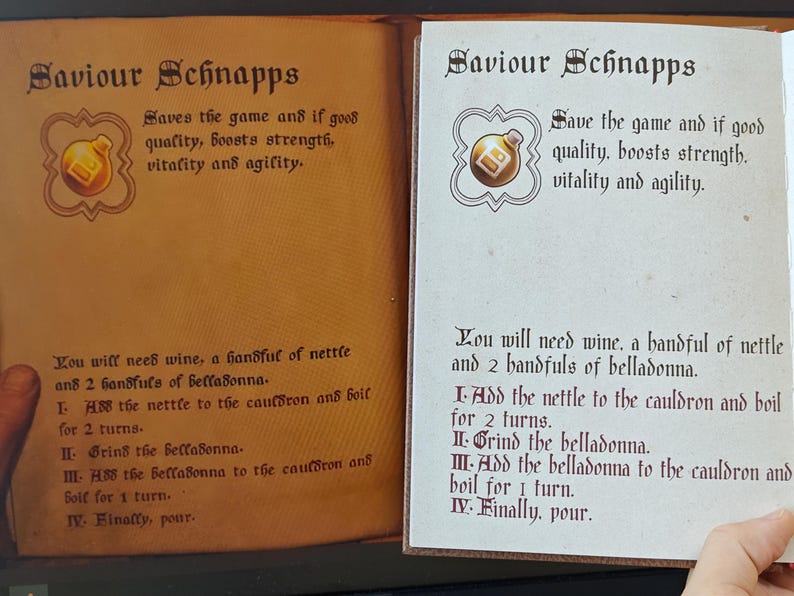 Saviour Schnapps
Saves the game and if good
quality, boosts strength,
vitality and agility.
You will need wine, a handful of nettle
and 2 handfuls of belladonna.
I. Add the nettle to the cauldron and boil
for 2 turns.
II. Grind the belladonna.
III. Add the belladonna to the cauldron and
boil for 1 turn.
IV. Finally, pour.
Saviour Schnapps
Save the game and if good
quality, boosts strength,
vitality and agility.
You will need wine, a handful of nettle
and 2 handfuls of belladonna.
I. Add the nettle to the cauldron and boil
for 2 turns.
II. Grind the belladonna.
III. Add the belladonna to the cauldron and
boil for 1 turn.
IV. Finally, pour.